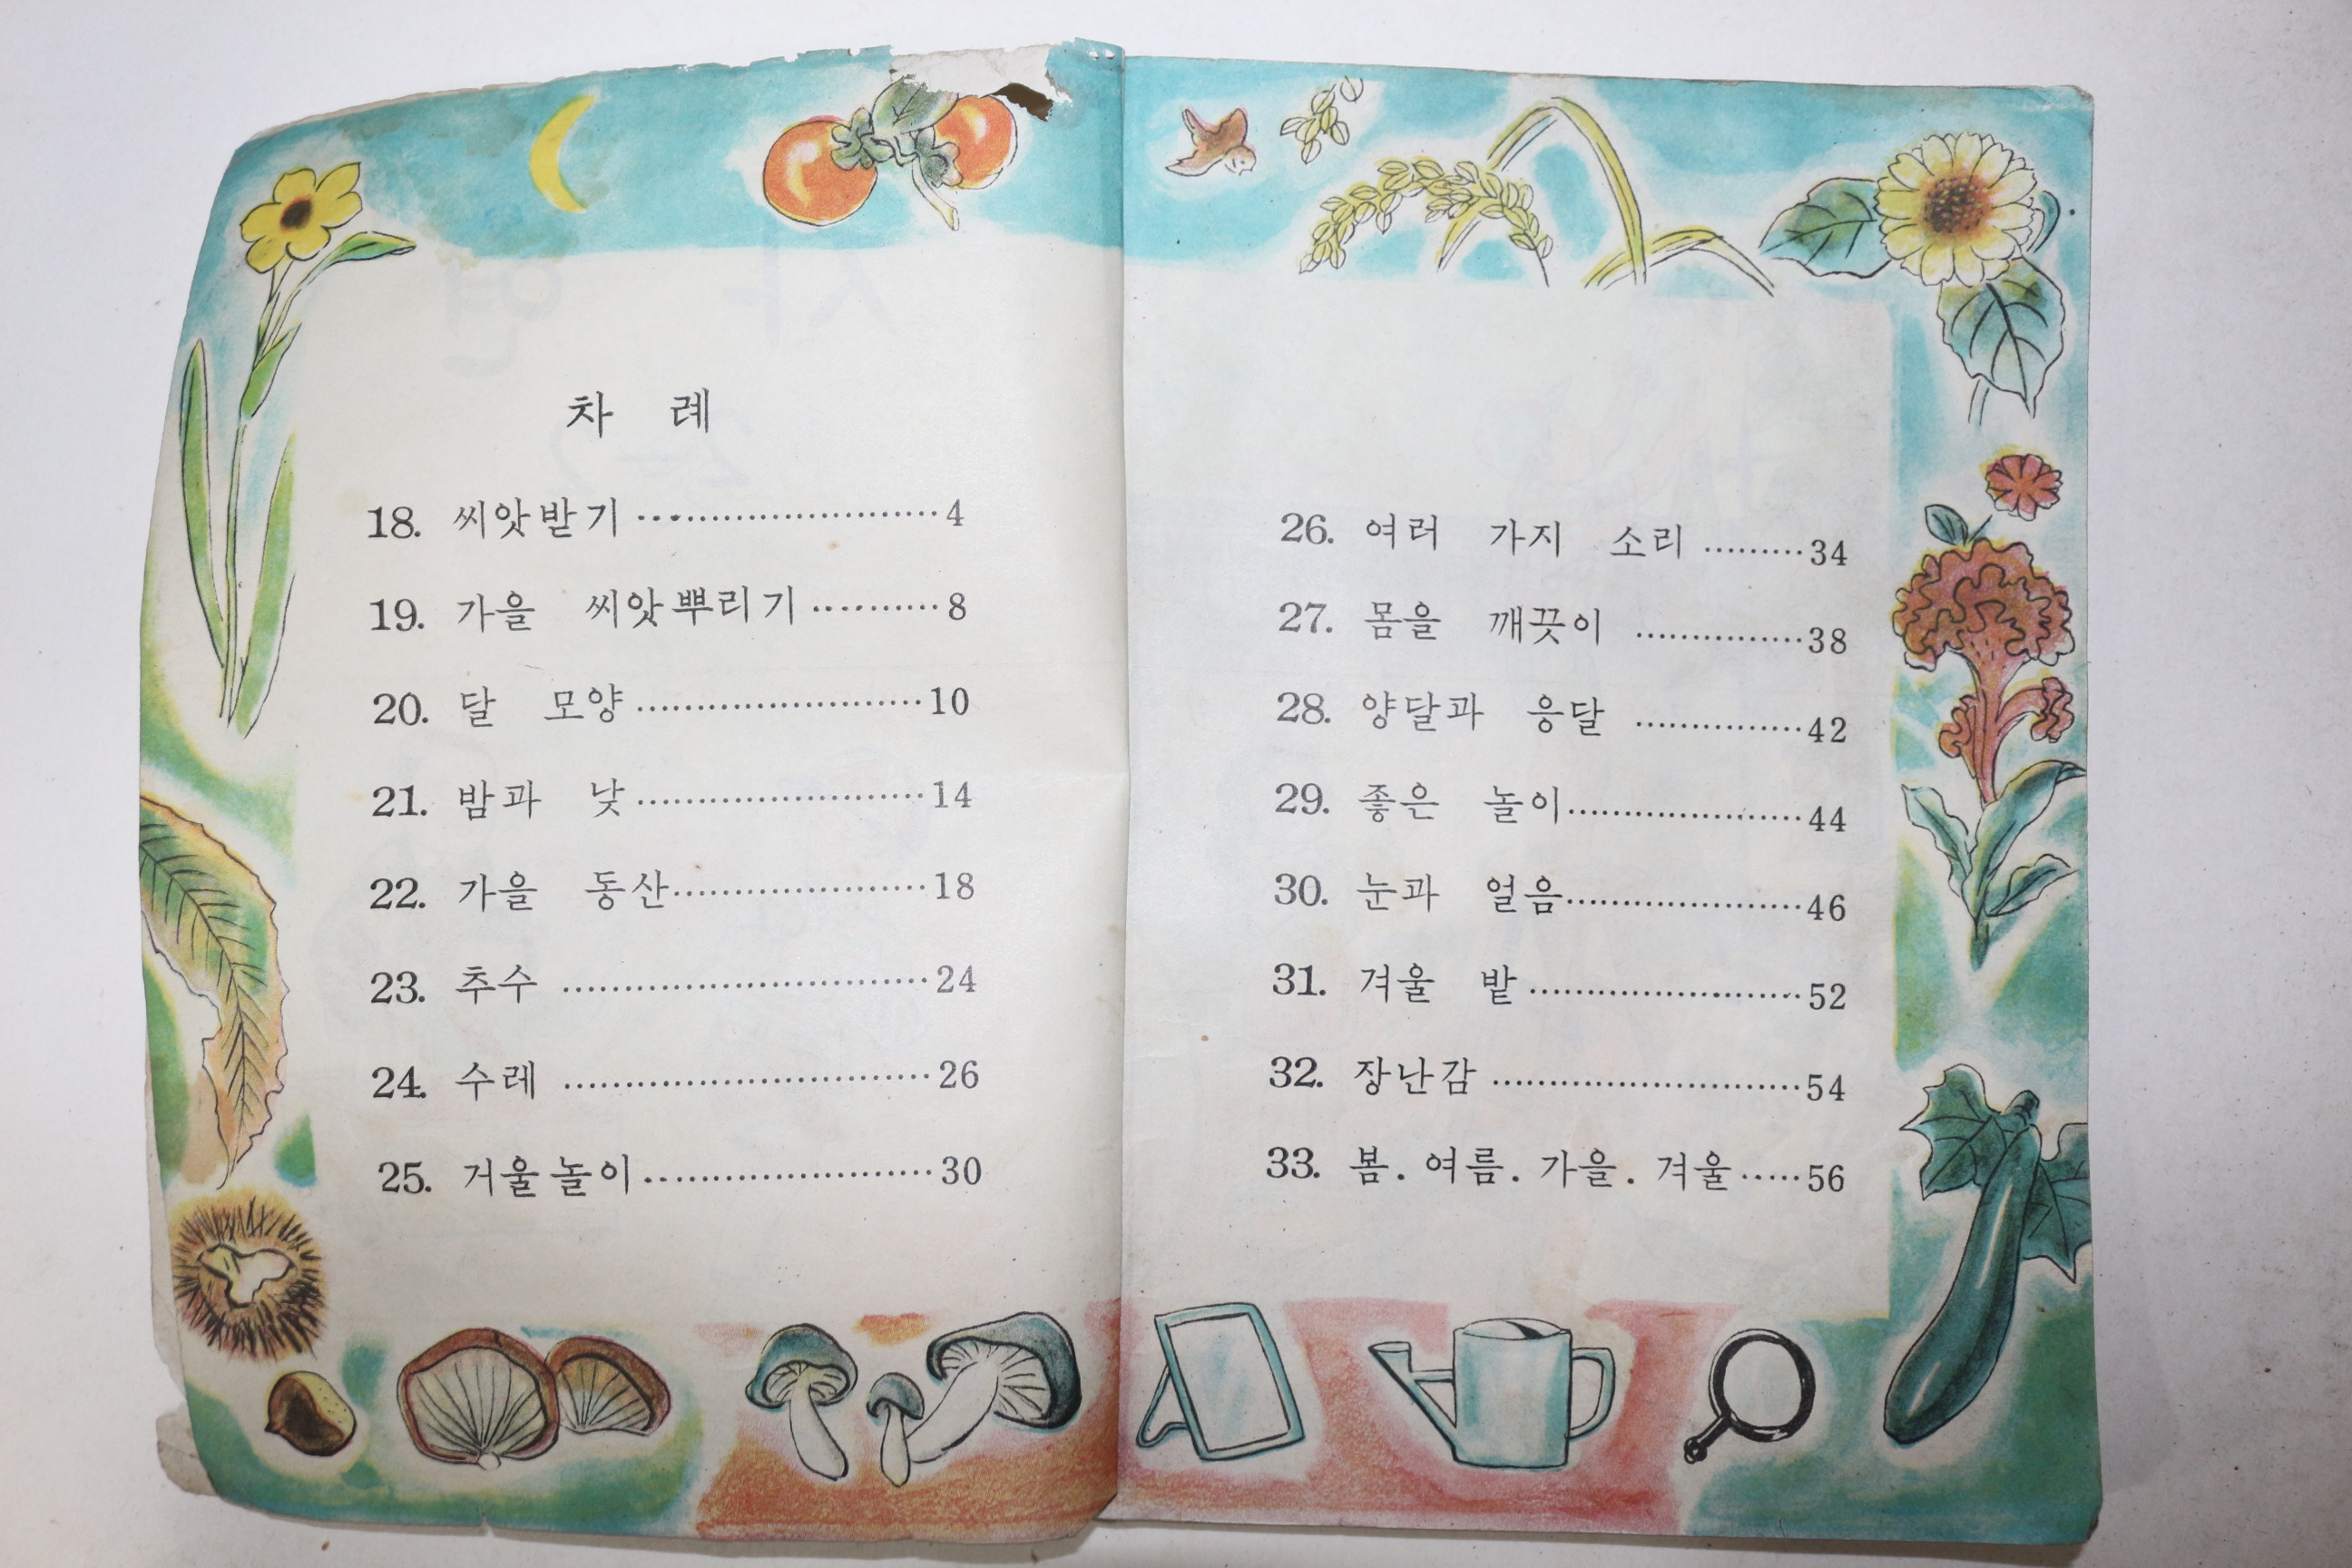 차 례
18. 씨앗받기 ………………………… 4
19. 가을 씨앗뿌리기 ………… 8
20. 달 모양 ……………………… 10
21. 밤과 낮 ……………………… 14
22. 가을 동산 …………………… 18
23. 추수 …………………………… 24
24. 수레 …………………………… 26
25. 거울놀이 ……………………… 30
26. 여러 가지 소리 ……… 34
27. 몸을 깨끗이 …………… 38
28. 양달과 응달 …………… 42
29. 좋은 놀이 ………………… 44
30. 눈과 얼음 ………………… 46
31. 겨울 밭 …………………… 52
32. 장난감 ……………………… 54
33. 봄. 여름. 가을. 겨울 …… 56